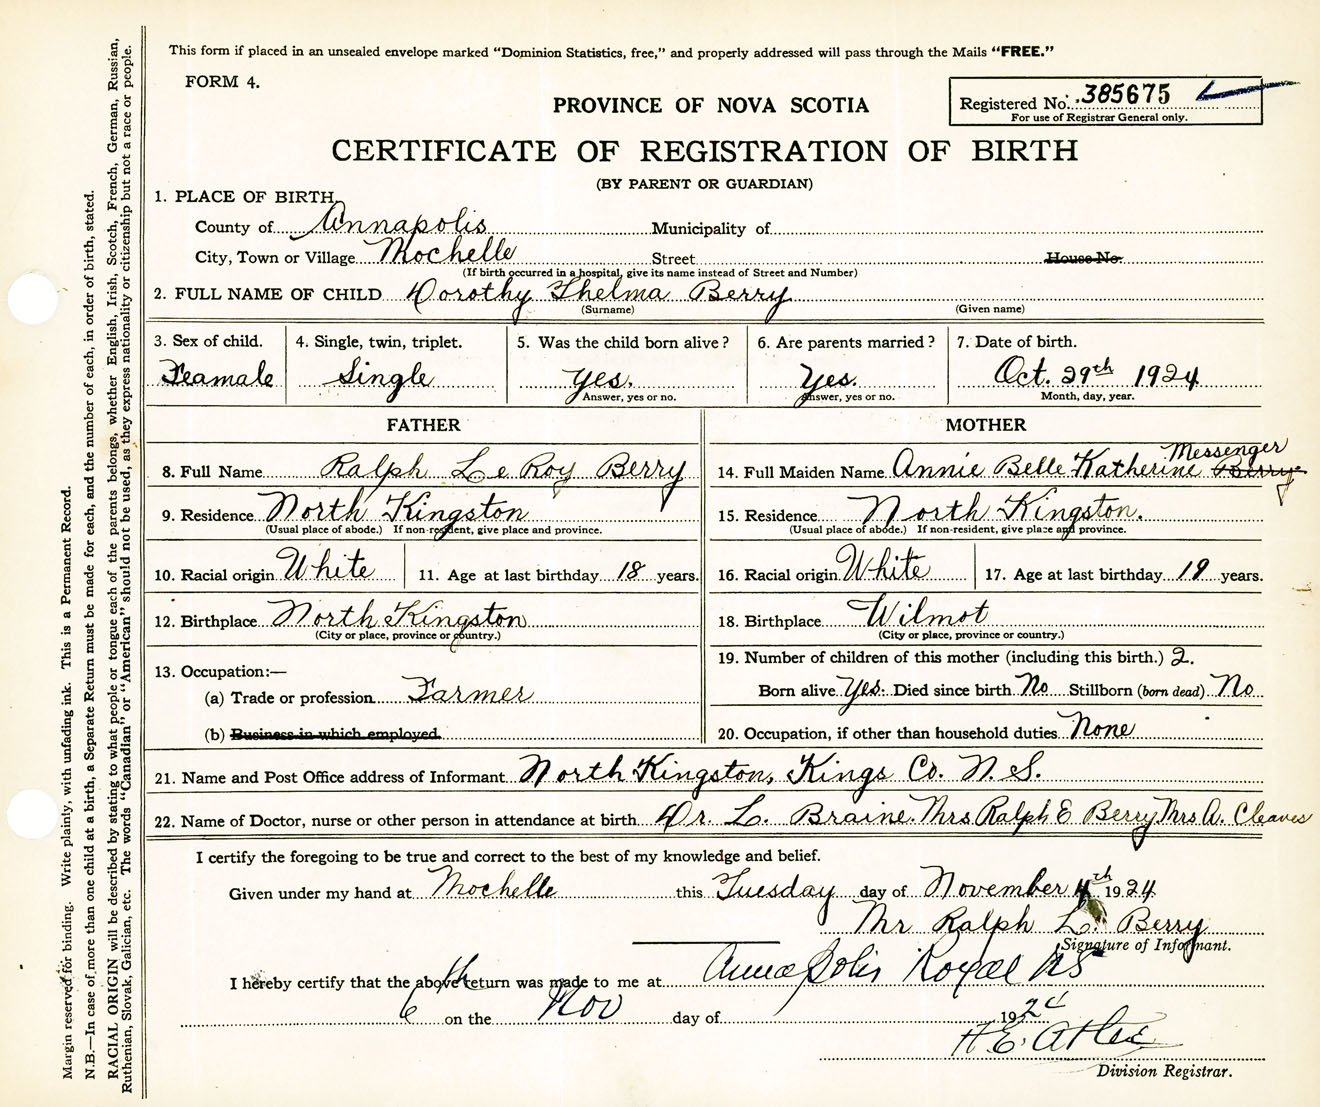 This form if placed in an unsealed envelope marked “Dominion Statistics, free,” and properly addressed will pass through the Mails “FREE.”
FORM 4.
Registered No. 385675
For use of Registrar General only.
PROVINCE OF NOVA SCOTIA
CERTIFICATE OF REGISTRATION OF BIRTH
(BY PARENT OR GUARDIAN)
1. PLACE OF BIRTH
County of Annapolis Municipality of
City, Town or Village Mochelle Street House No.
(If birth occurred in a hospital, give its name instead of Street and Number)
2. FULL NAME OF CHILD Dorothy Thelma Berry
(Surname) (Given name)
3. Sex of child. 4. Single, twin, triplet. 5. Was the child born alive? 6. Are parents married? 7. Date of birth.
Feamale Single Yes. Yes. Oct. 29th 1924
Answer, yes or no. Answer, yes or no. Month, day, year.
FATHER MOTHER
8. Full Name Ralph Le Roy Berry
14. Full Maiden Name Annie Belle Katherine Messenger Berry
9. Residence North Kingston
(Usual place of abode.) If non-resident, give place and province.
15. Residence North Kingston.
(Usual place of abode.) If non-resident, give place and province.
10. Racial origin White 11. Age at last birthday 18 years.
16. Racial origin White 17. Age at last birthday 19 years.
12. Birthplace North Kingston
(City or place, province or country.)
18. Birthplace Wilmot
(City or place, province or country.)
13. Occupation:—
(a) Trade or profession Farmer
(b) Business in which employed.
19. Number of children of this mother (including this birth.) 2.
Born alive Yes. Died since birth No Stillborn (born dead) No
20. Occupation, if other than household duties None
21. Name and Post Office address of Informant North Kingston, Kings Co. N.S.
22. Name of Doctor, nurse or other person in attendance at birth Dr. L. Braine. Mrs Ralph E Berry Mrs A. Cleaves
I certify the foregoing to be true and correct to the best of my knowledge and belief.
Given under my hand at Mochelle this Tuesday day of November 4th 1924
Mr Ralph L. Berry
Signature of Informant.
I hereby certify that the above return was made to me at Annapolis Royal NS
6th on the Nov day of 1924
H.E.
Division Registrar.
Margin reserved for binding. Write plainly, with unfading ink. This is a Permanent Record.
N.B.—In case of more than one child at a birth, a Separate Return must be made for each, and the number of each, in order of birth, stated.
RACIAL ORIGIN will be described by stating to what people or tongue each of the parents belongs, whether English, Irish, Scotch, French, German, Russian,
Ruthenian, Slovak, Galician, etc. The words “Canadian” or “American” should not be used, as they express nationality or citizenship but not a race or people.